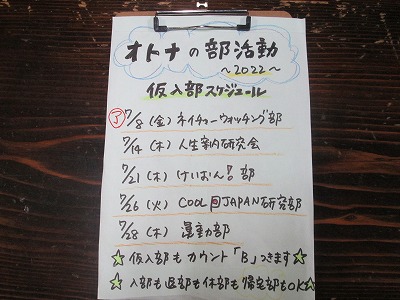 オトナの部活動
~2022~
仮入部スケジュール
了 7/8(金)ネイチャーウォッチング部
7/14(木)人生案内研究会
7/21(木)けいおん!部
7/26(火)COOL回JAPAN研究部
7/28(木)運動部
☆仮入部もカウント「B」つきます☆
☆入部も退部も休部も帰宅部もOK☆